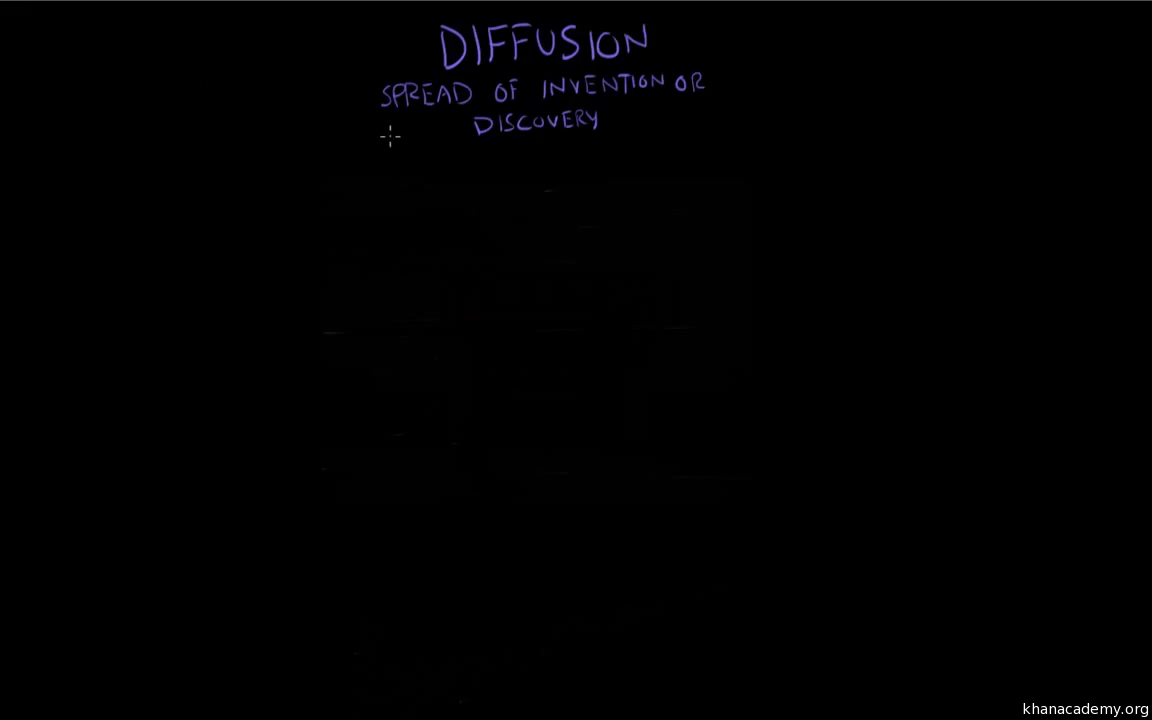 DIFFUSION
SPREAD OF INVENTION OR
DISCOVERY
khanacademy.org